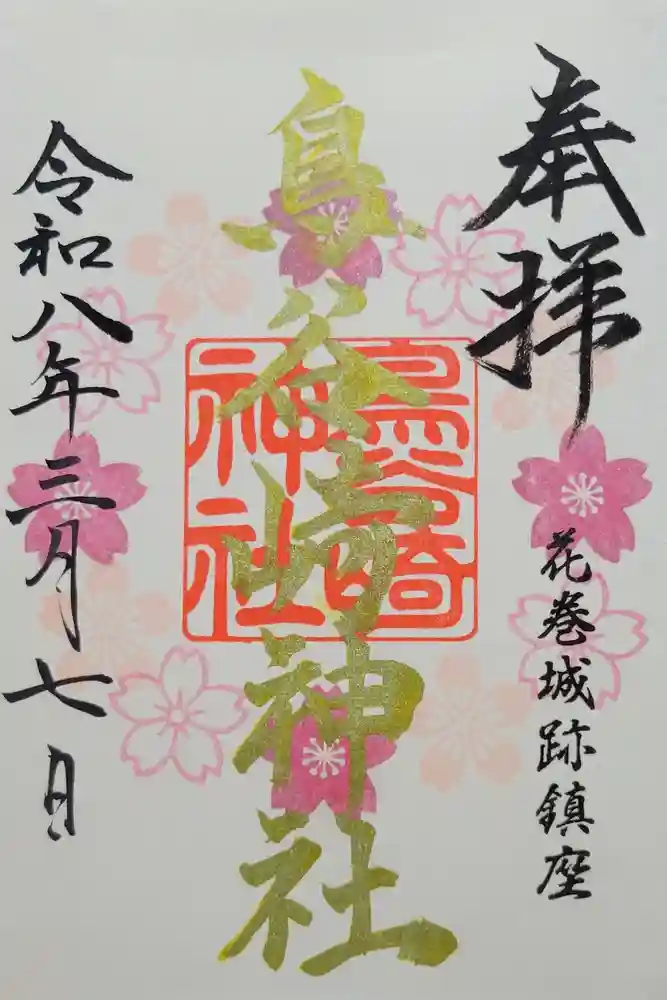 奉拝
花巻城跡鎮座
鳥谷崎神社
鳥谷崎神社
令和八年三月七日